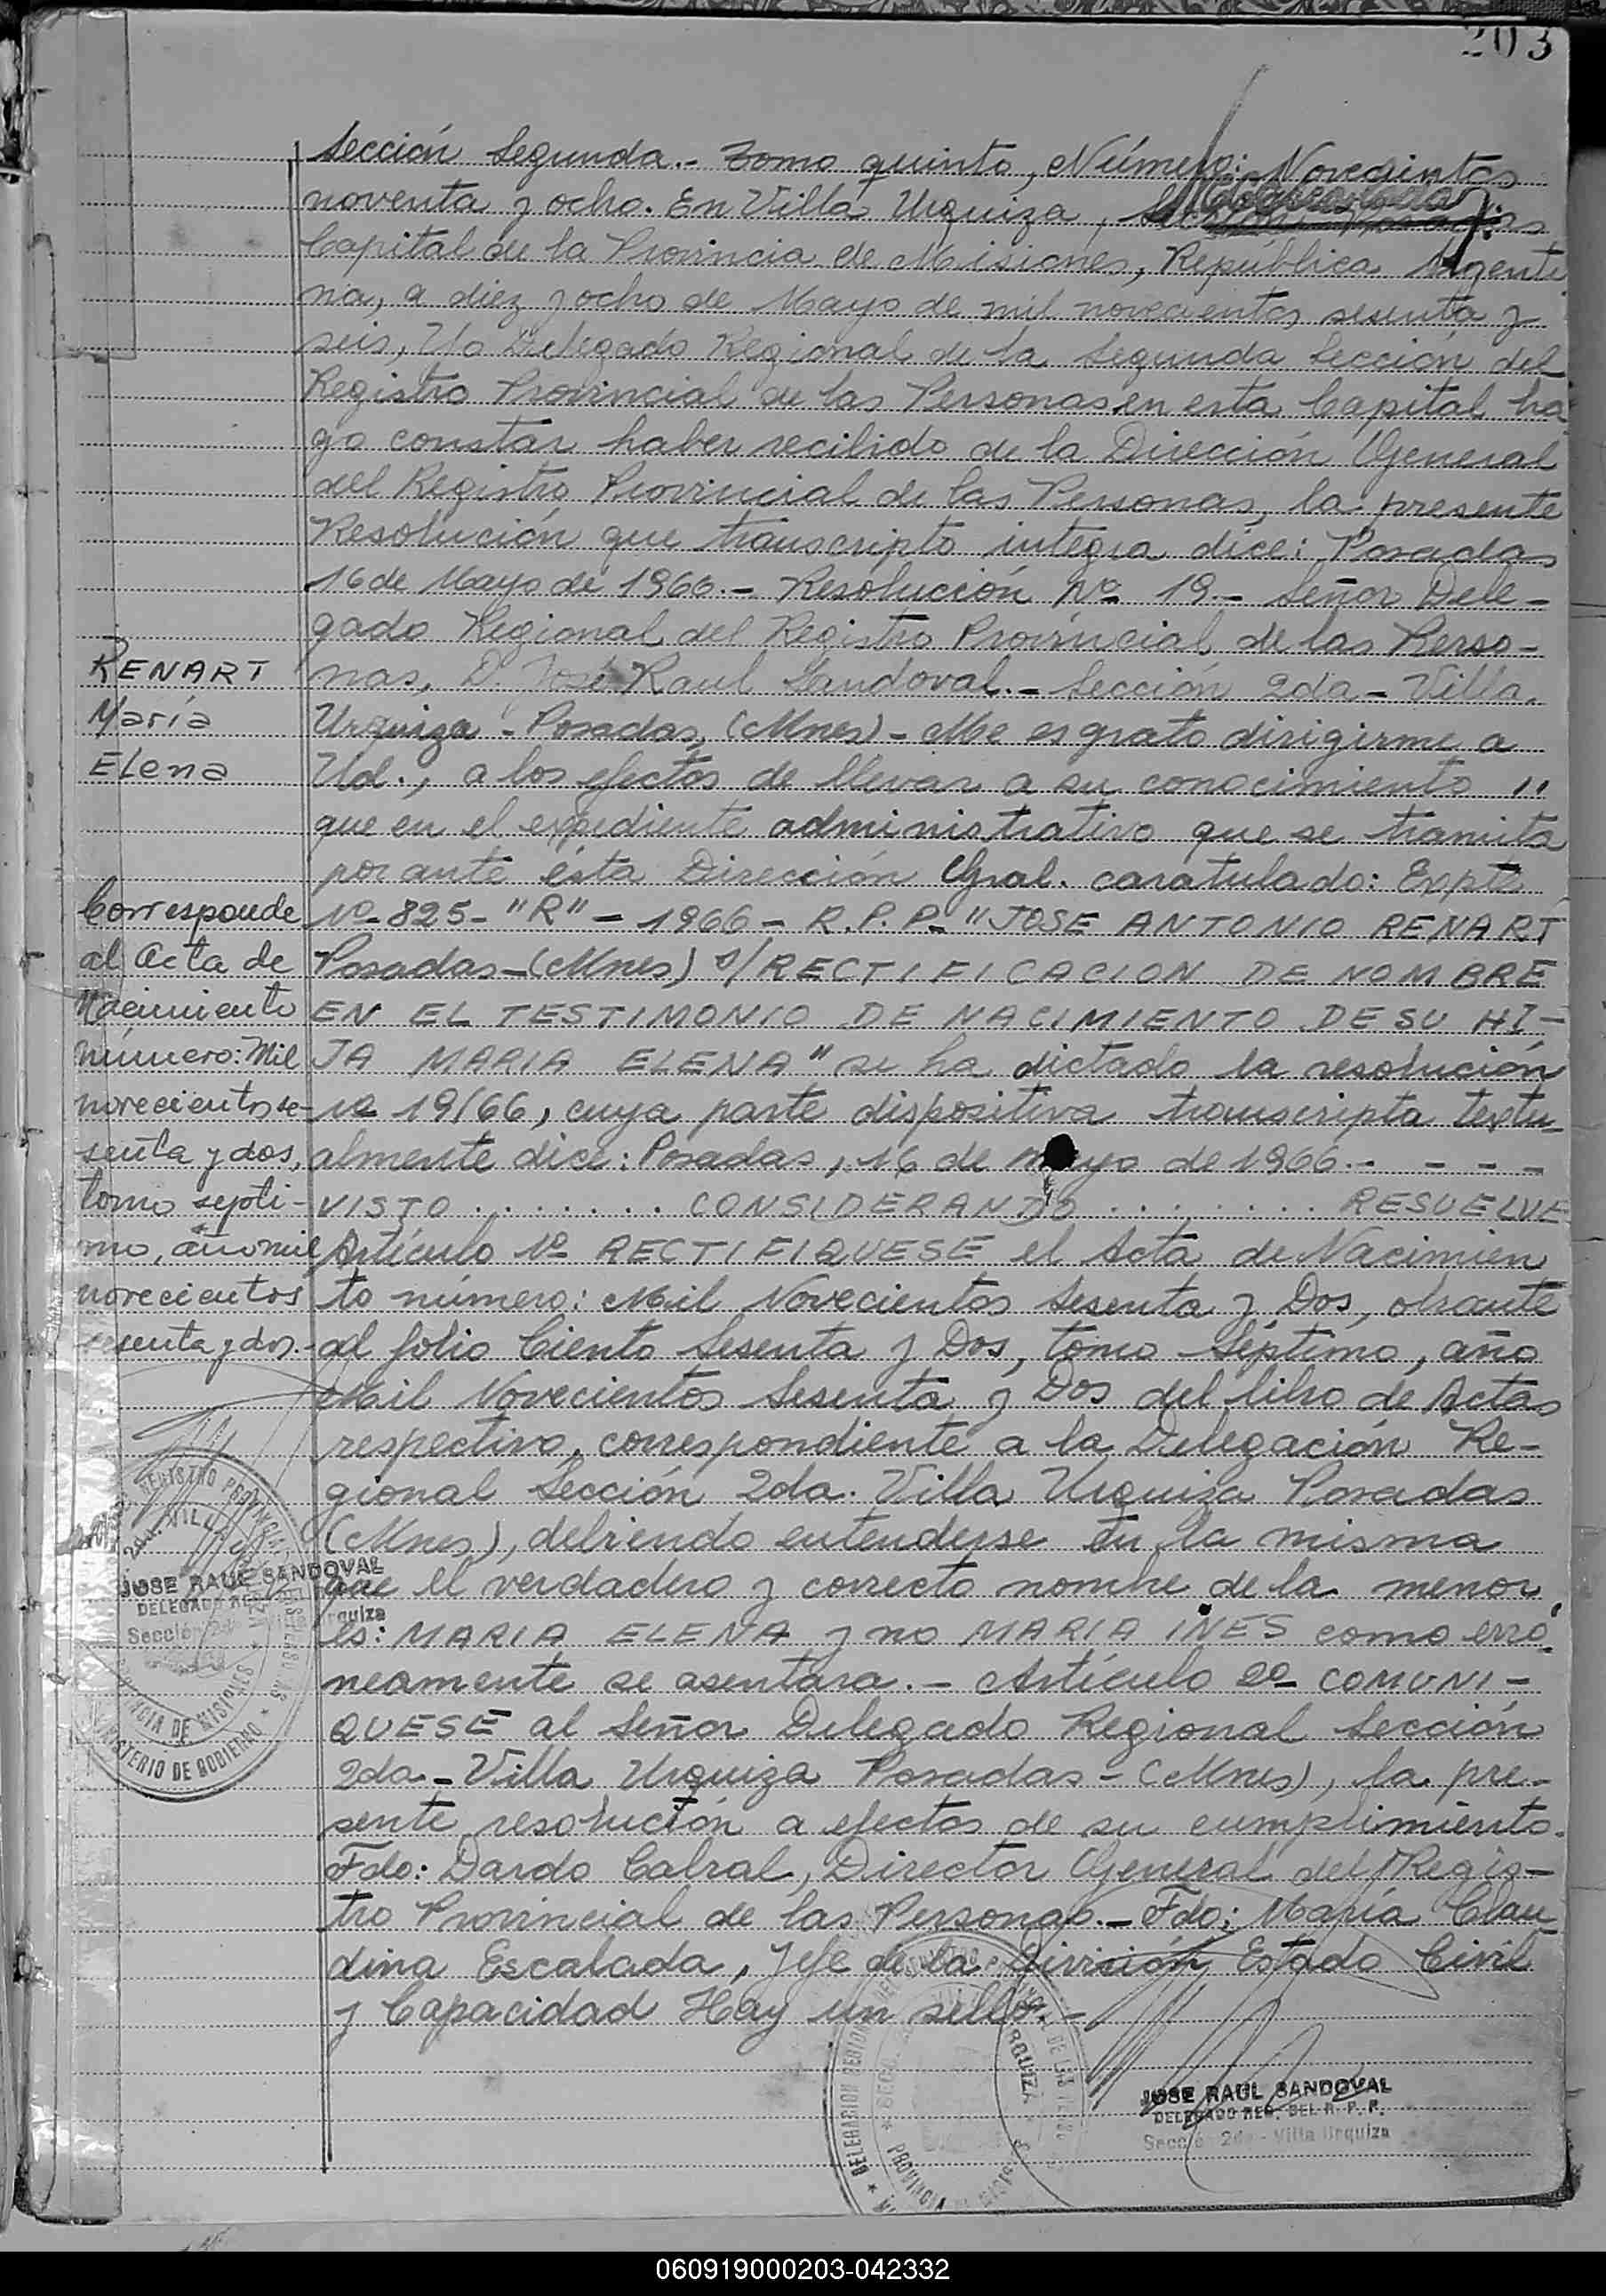 203
Sección Segunda.- Tomo quinto, Número: Novecientos
noventa y ocho. En Villa Urquiza,
Capital de la Provincia de Misiones, República Argenti
na, a diez y ocho de Mayo de mil novecientos sesenta y
seis, Yo Delegado Regional de la Segunda Sección del
Registro Provincial de las Personas en esta Capital ha
go constar haber recibido de la Dirección General
del Registro Provincial de las Personas, la presente
Resolución que transcripto integra dice: Posadas
16 de Mayo de 1966.- Resolución Nº 19- Señor Dele-
gado Regional del Registro Provincial de las Perso-
nas, D. José Raul Sandoval.- Sección 2da- Villa
Urquiza - Posadas, (Mnes)- Me es grato dirigirme a
Ud., a los efectos de llevar a su conocimiento "
que en el expediente administrativo que se tramita
por ante ésta Dirección Gral. caratulado: Expte
Nº-825-"R"-1966- R.P.P- "JOSE ANTONIO RENART
Posadas-(Mnes) s/RECTIFICACION DE NOMBRE
EN EL TESTIMONIO DE NACIMIENTO DE SU HI-
JA MARIA ELENA" se ha dictado la resolución
Nº 19/66, cuya parte dispositiva transcripta textu-
almente dice: Posadas, 16 de mayo de 1966.- - - -
VISTO ....... CONSIDERANDO ....... RESUELVE
Artículo 1º RECTIFIQUESE el Acta de Nacimien
to número: Mil Novecientos Sesenta y Dos, obrante
al folio Ciento Sesenta y Dos, tomo Séptimo, año
Mil Novecientos Sesenta y Dos del libro de Actas
respectivo, correspondiente a la Delegación Re-
gional Sección 2da. Villa Urquiza Posadas
(Mnes), debiendo entenderse en la misma
que el verdadero y correcto nombre de la menor
es: MARIA ELENA y no MARIA INES como erró-
neamente se asentara.- Artículo 2º- COMUNI-
QUESE al Señor Delegado Regional Sección
2da-Villa Urquiza Posadas-(Mnes), la pre-
sente resolución a efectos de su cumplimiento.
Fdo: Dardo Cabral, Director General del Regis-
tro Provincial de las Personas.- Fdo: María Clau-
dina Escalada, Jefe de la División Estado Civil
y Capacidad Hay un sello.-
RENART
María
Elena
Corresponde
al Acta de
Nacimiento
número: Mil
novecientos se-
senta y dos,
tomo septi-
mo, año mil
novecientos
sesenta y dos.-
JOSE RAUL SANDOVAL
DELEGADO REG.
Sección 2da Urquiza
REGISTRO PROVINCIAL
2da. VILLA
PROVINCIA DE MISIONES
MINISTERIO DE GOBIERNO
DELEGACION REGIONAL
PROVINCIA
URQUIZA
JOSE RAUL SANDOVAL
DELEGADO REG. DEL R. P. P.
Sección 2da - Villa Urquiza
060919000203-042332